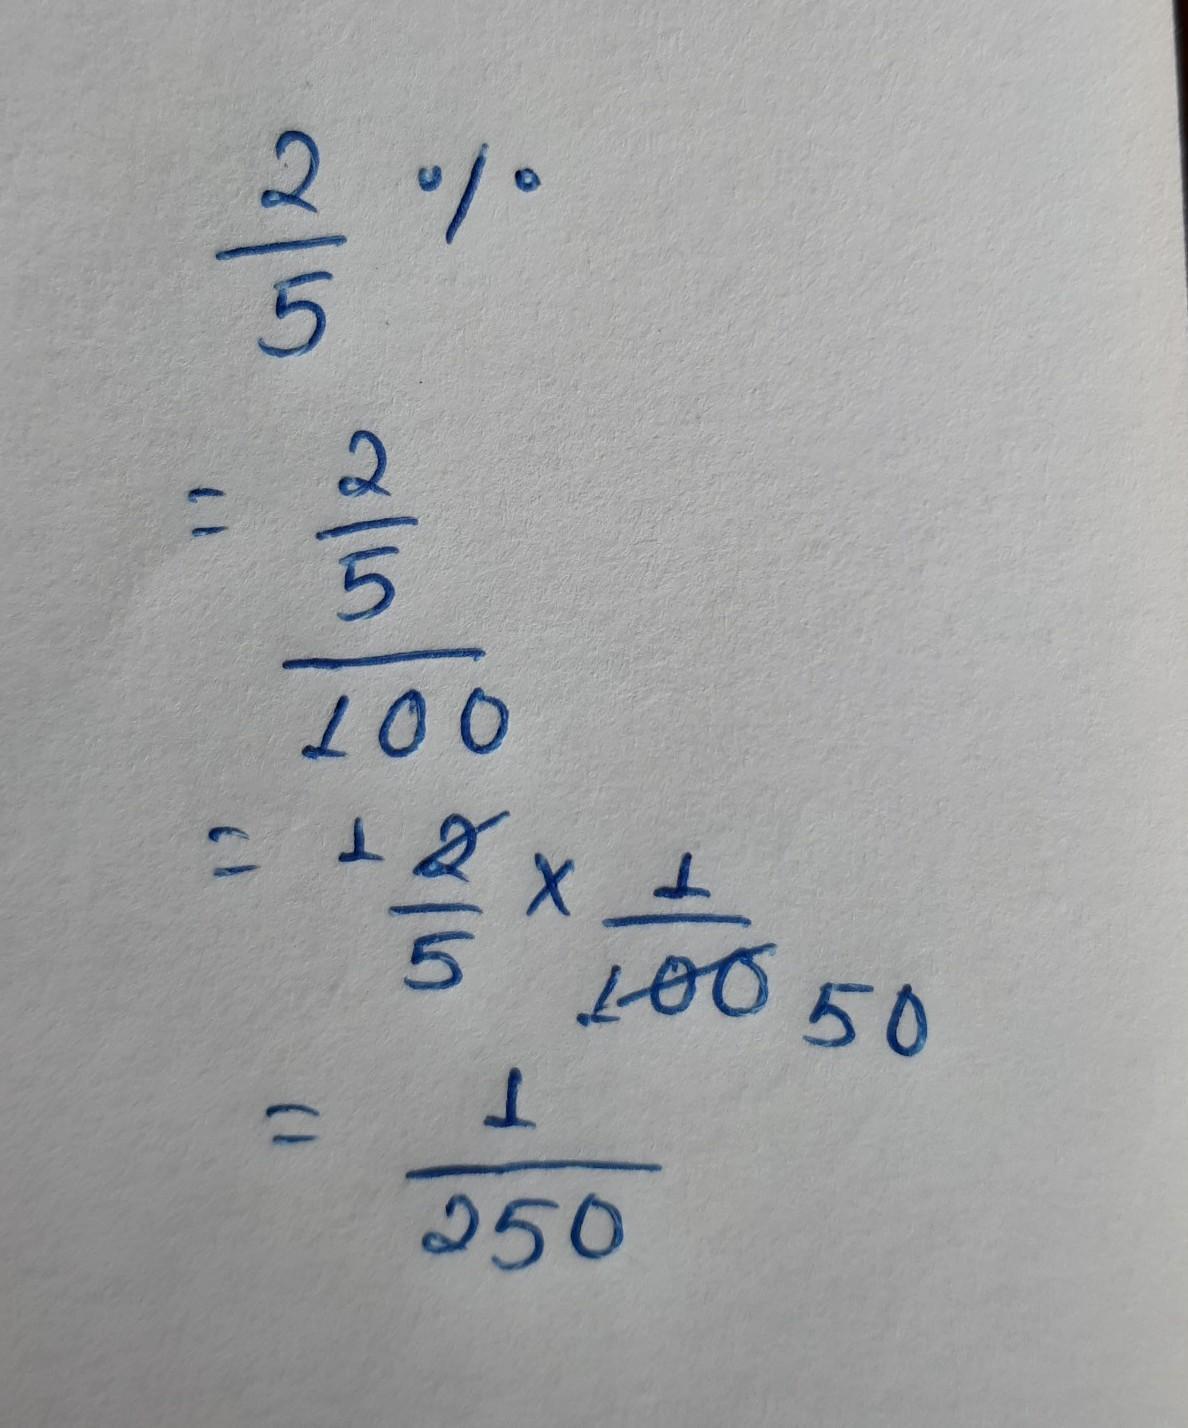 2/5 %
= 2/5
100
= 1 2/5 × 1/100 50
= 1/250